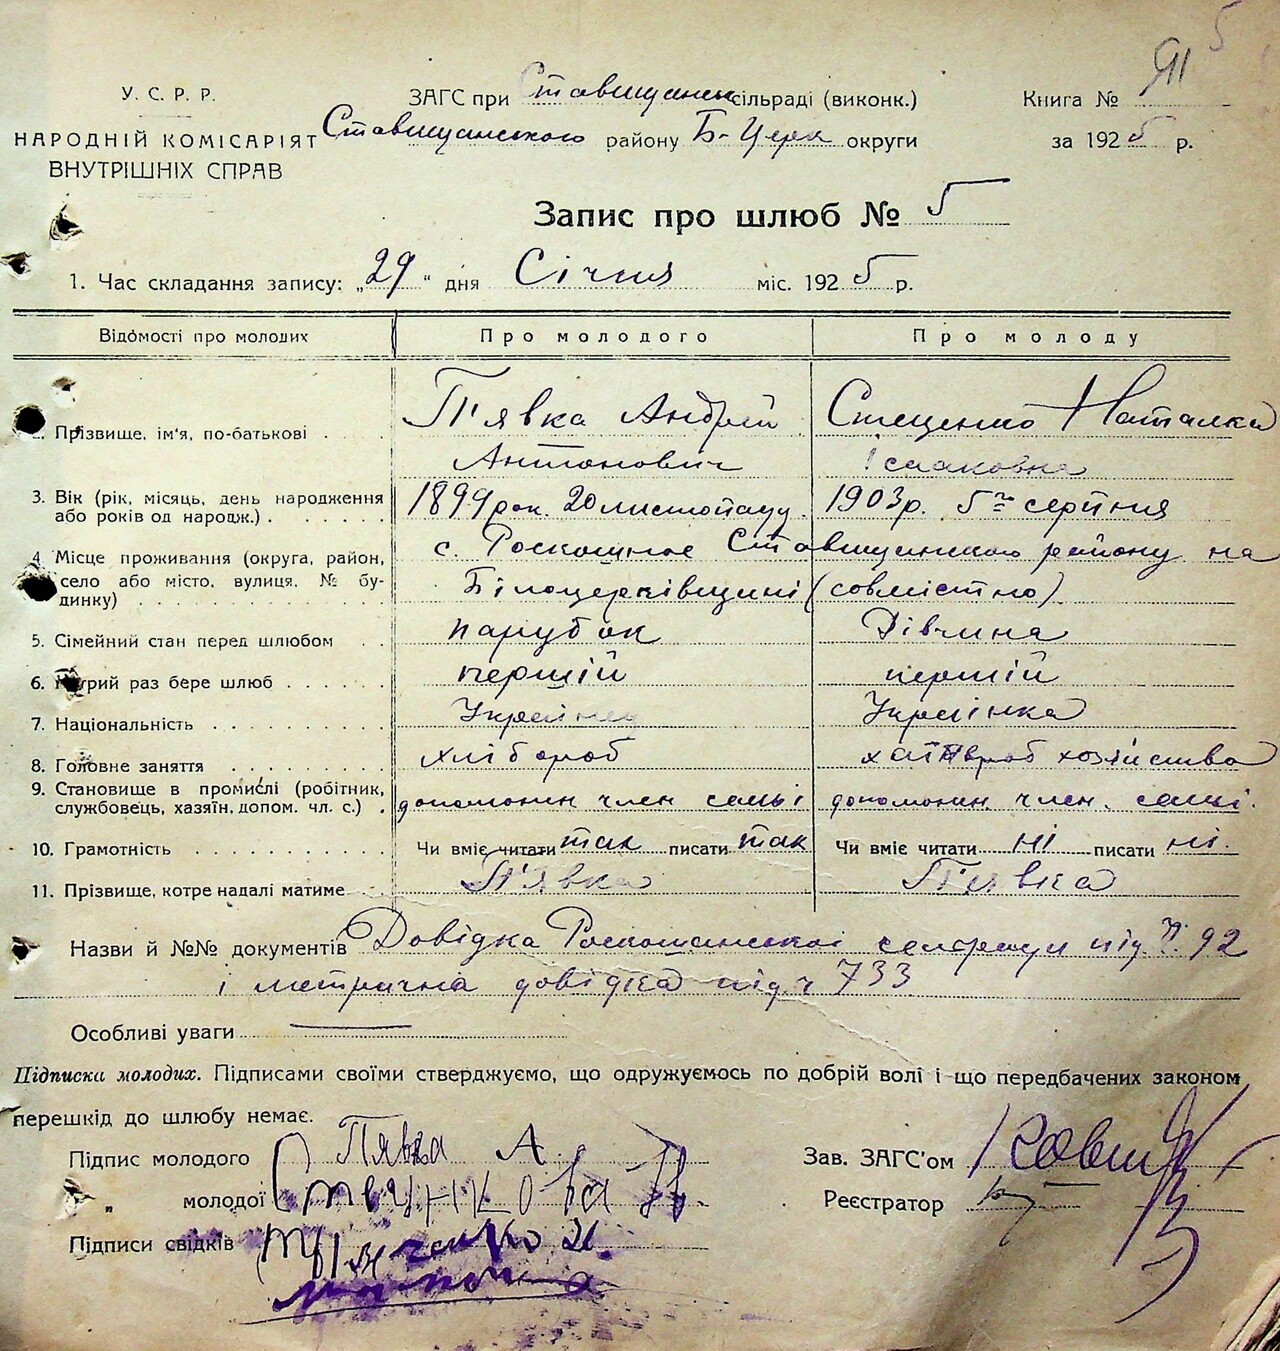 5
У. С. Р. Р.
НАРОДНІЙ КОМІСАРІЯТ
ВНУТРІШНІХ СПРАВ
ЗАГС при Ставищанськ сільраді (виконк.)
Ставищанського району Б-Церк округи
Книга №
за 1925 р.
Запис про шлюб № 5
1. Час складання запису: „29“ дня Січня міс. 1925 р.
Відомості про молодих Про молодого Про молоду
2. Прізвище, ім'я, по-батькові П'явка Андрій Стеценко Наталка
Антонович Ісааковна
3. Вік (рік, місяць, день народження 1899 рок. 20 листопаду. 1903 р. 5го серпня
або років од народж.)
4. Місце проживання (округа, район, с. Роскошное Ставищинского району на
село або місто, вулиця, № бу- Білоцерківщині (совмістно)
динку)
5. Сімейний стан перед шлюбом парубок Дівчина
6. Котрий раз бере шлюб першій першій
7. Національність Українец Українка
8. Головне заняття хлібороб хозяйства
9. Становище в промислі (робітник, допомонин член семьі допомонин. член. семьі.
службовець, хазяїн, допом. чл. с.)
10. Грамотність Чи вміє читати так писати так Чи вміє читати ні писати ні.
11. Прізвище, котре надалі матиме П'явка П'явка
Назви й №№ документів Довідка Роскошанськоі сельради під Ч. 92
і метрична довідка під ч 733
Особливі уваги
Підписка молодих. Підписами своїми стверджуємо, що одружуємось по добрій волі і що передбачених законом
перешкід до шлюбу немає.
Підпис молодого Пявка А
„ молодої
Підписи свідків
Зав. ЗАГС'ом
Реєстратор